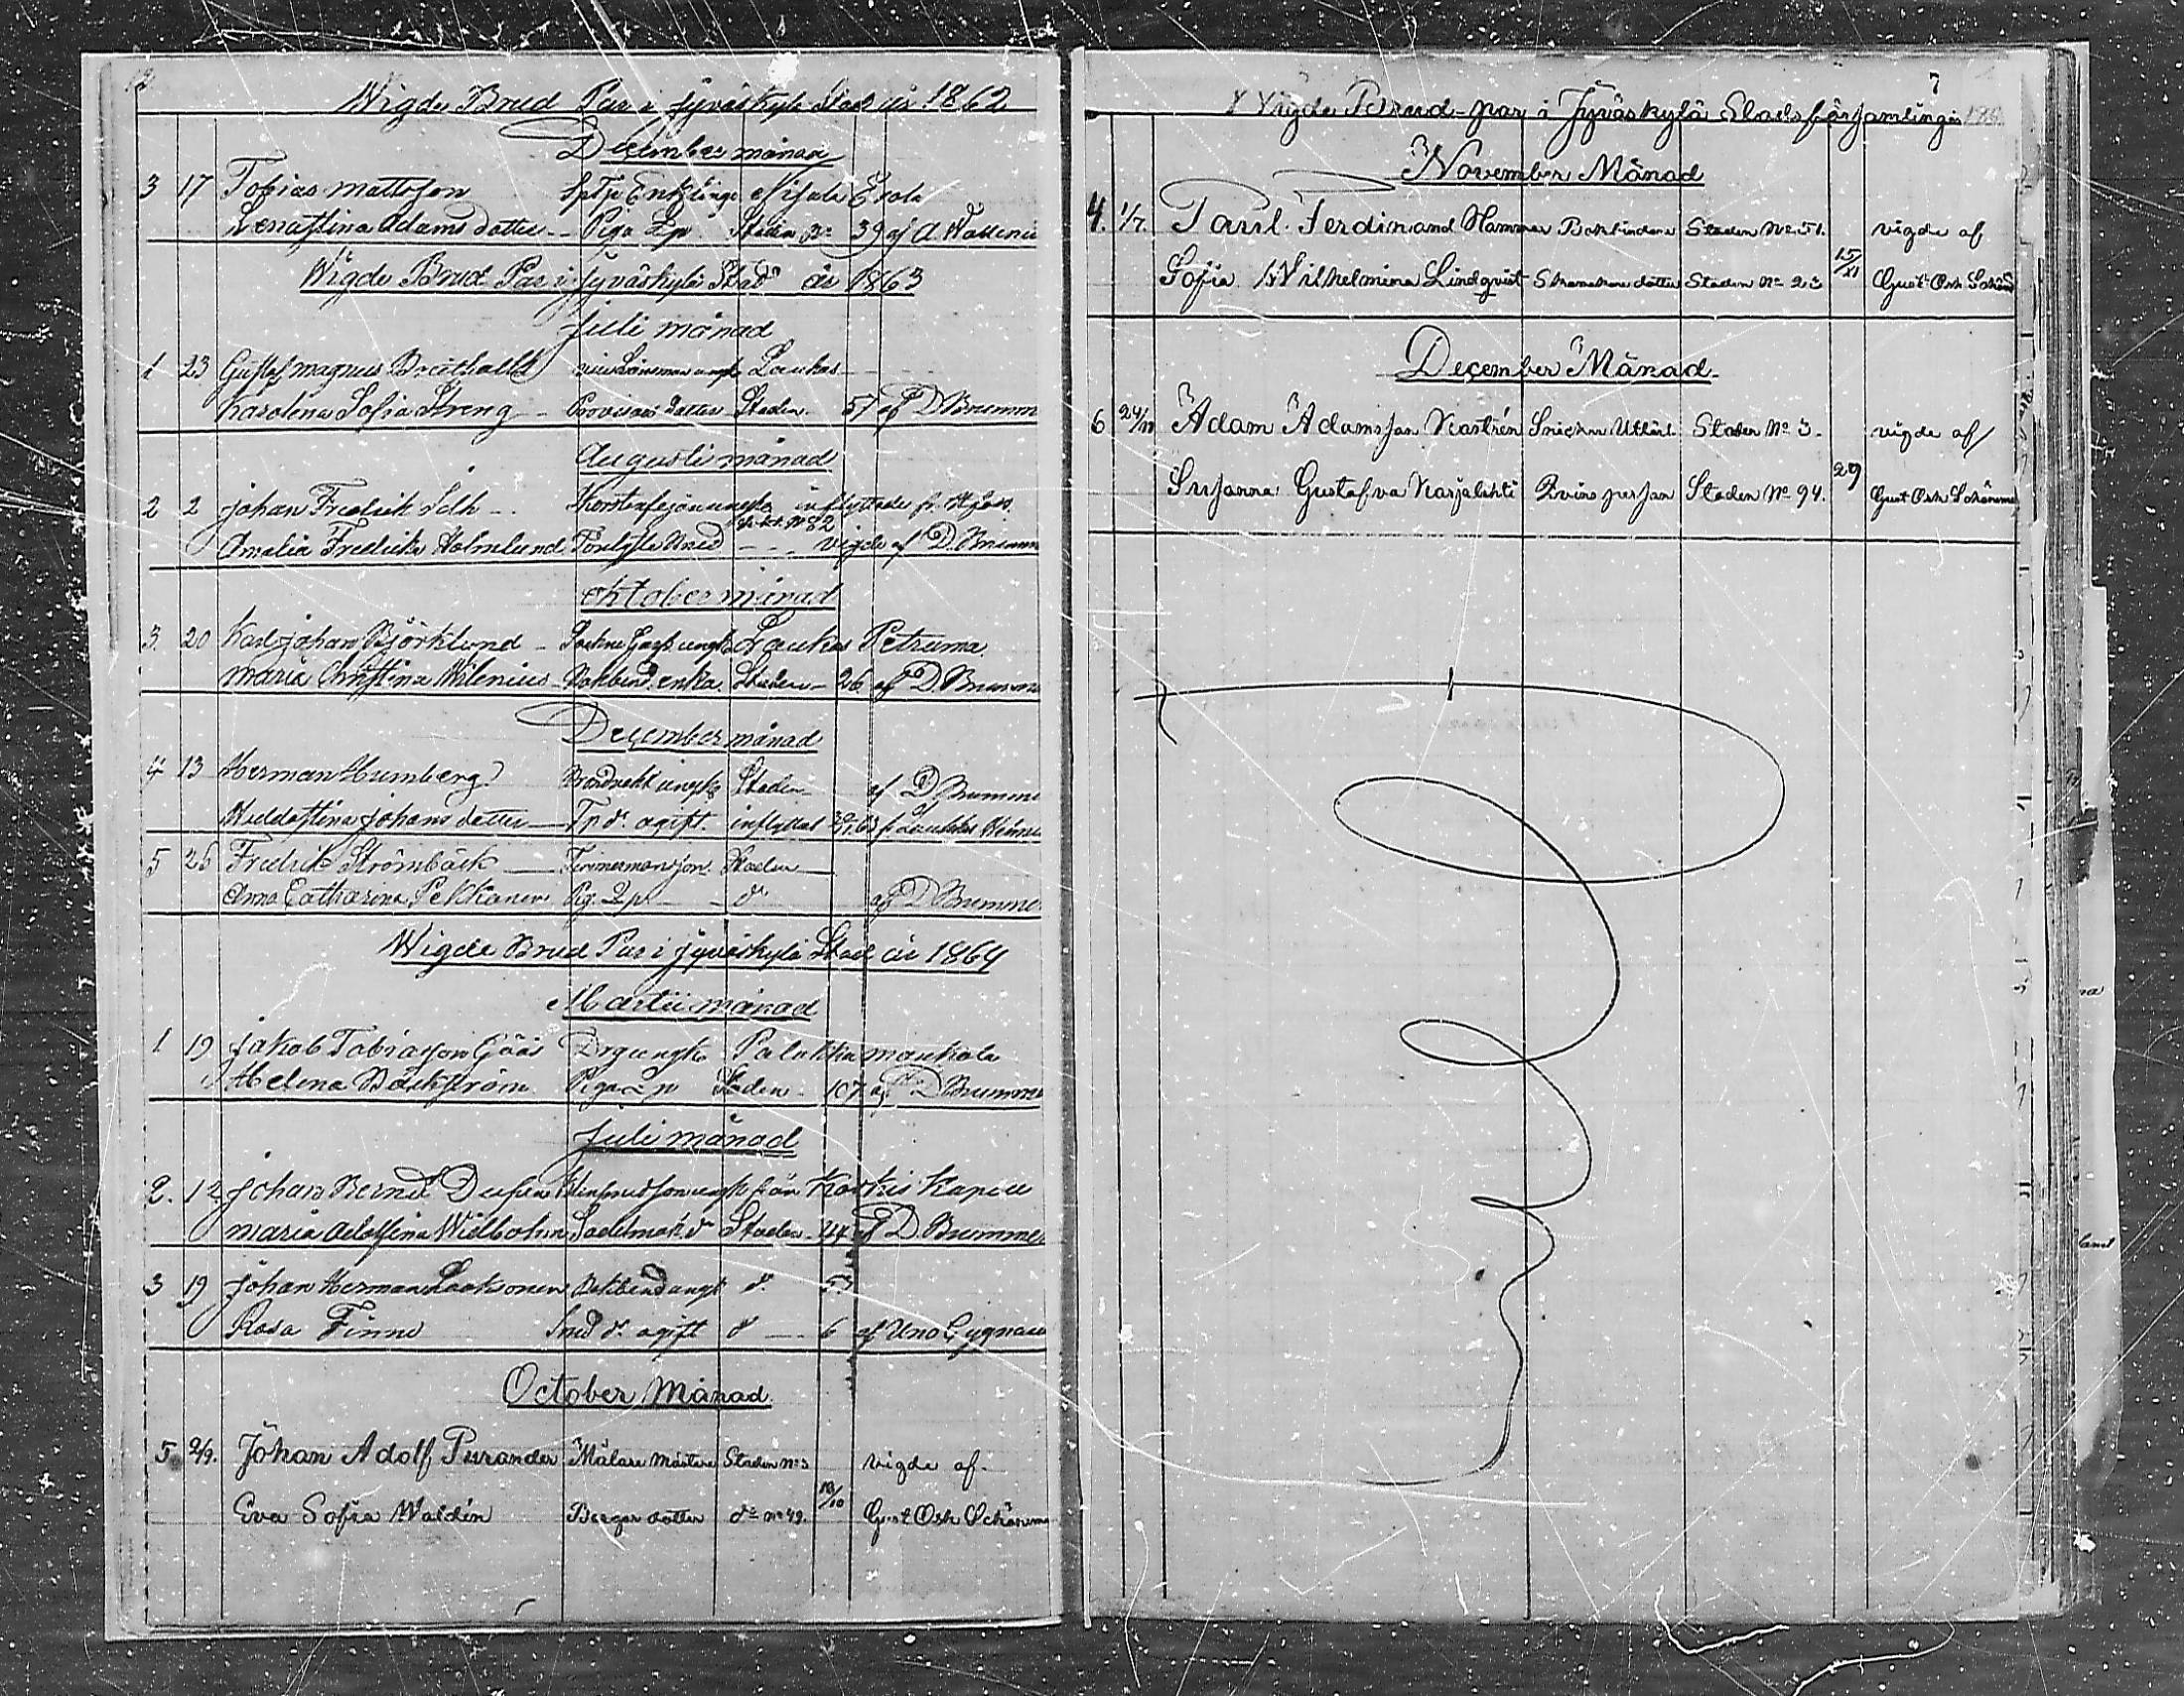 12
Wigde Brud Par i Jyväskylä Stad år 1862
December månad
3 17 Tobias Mattsson Enklinge Nisula Erola
Lenastina Adams dotter Piga Staden No 39 af A. Wallenius
Wigde Brud Par i Jyväskylä Stad år 1863
Juli månad
1 23 Gustaf Magnus Breithollz Länsman ungk Laukas
Karolina Sofia Streng Provisors dotter Staden 57 af D Brummer
Augusti månad
2 2 Johan Fredrik inflyttade fr.
No 82
Amalia Fredrika Holmlund vigde af D. Brummer
Oktober månad
3. 20 Karl Johan Björklund ungk Laukas Petruma
Maria Christina Wilenius Bokbind. enka Staden 26 af D. Brummer
December månad
4 13 Herman Humberg Brandvakt ungk Staden af D Brummer
Heddastina Johans dotter ogift. inflyttat 63 fr Laukas
5 26 Fredrik Strömbäck Timmerman son Staden
Anna Catharina Pekkanen Pig. do af D Brummer
Wigde Brud Par i Jyväskylä Stad år 1864
Martii månad
1 19 Jakob Tobiasson Gåås Dr ungk Palokka Maukola
Helena Bäckström Piga Staden 107 af D Brummer
Juli månad
2. 12 Johan Bernd ungk från Korkis Kapell
Maria Adolfina Sadelmak. dr Staden 24 af D. Brummer
3 19 Johan Herman Laaksonen Bokbind ungk do 53
Rosa Finne Smed dr ogift do 6 af Uno Cygnaeus
October Månad.
5 2/9. Johan Adolf Purander Målare mästare Staden No 3 vigde af
Eva Sofia Waldén Borgar dotter do No 49. 10/10 Gust Osk Schöneman
7
Vigde Brud-par i Jyväskylä Stadsförsamling år 186
November Månad
4. 1/7. Paul Ferdinand Hammar Bokbindare Staden No 51. vigde af
Sofia Wilhelmina Lindqvist Skomakare dotter Staden No 23 15/XI Gust Osk Schönem
December Månad.
6 24/11 Adam Adamsson Kastrén Snickar Staden No 3. vigde af
Susanna Gustafva Karjalahti Qvins person Staden No 94. 29 Gust Osk Schönema